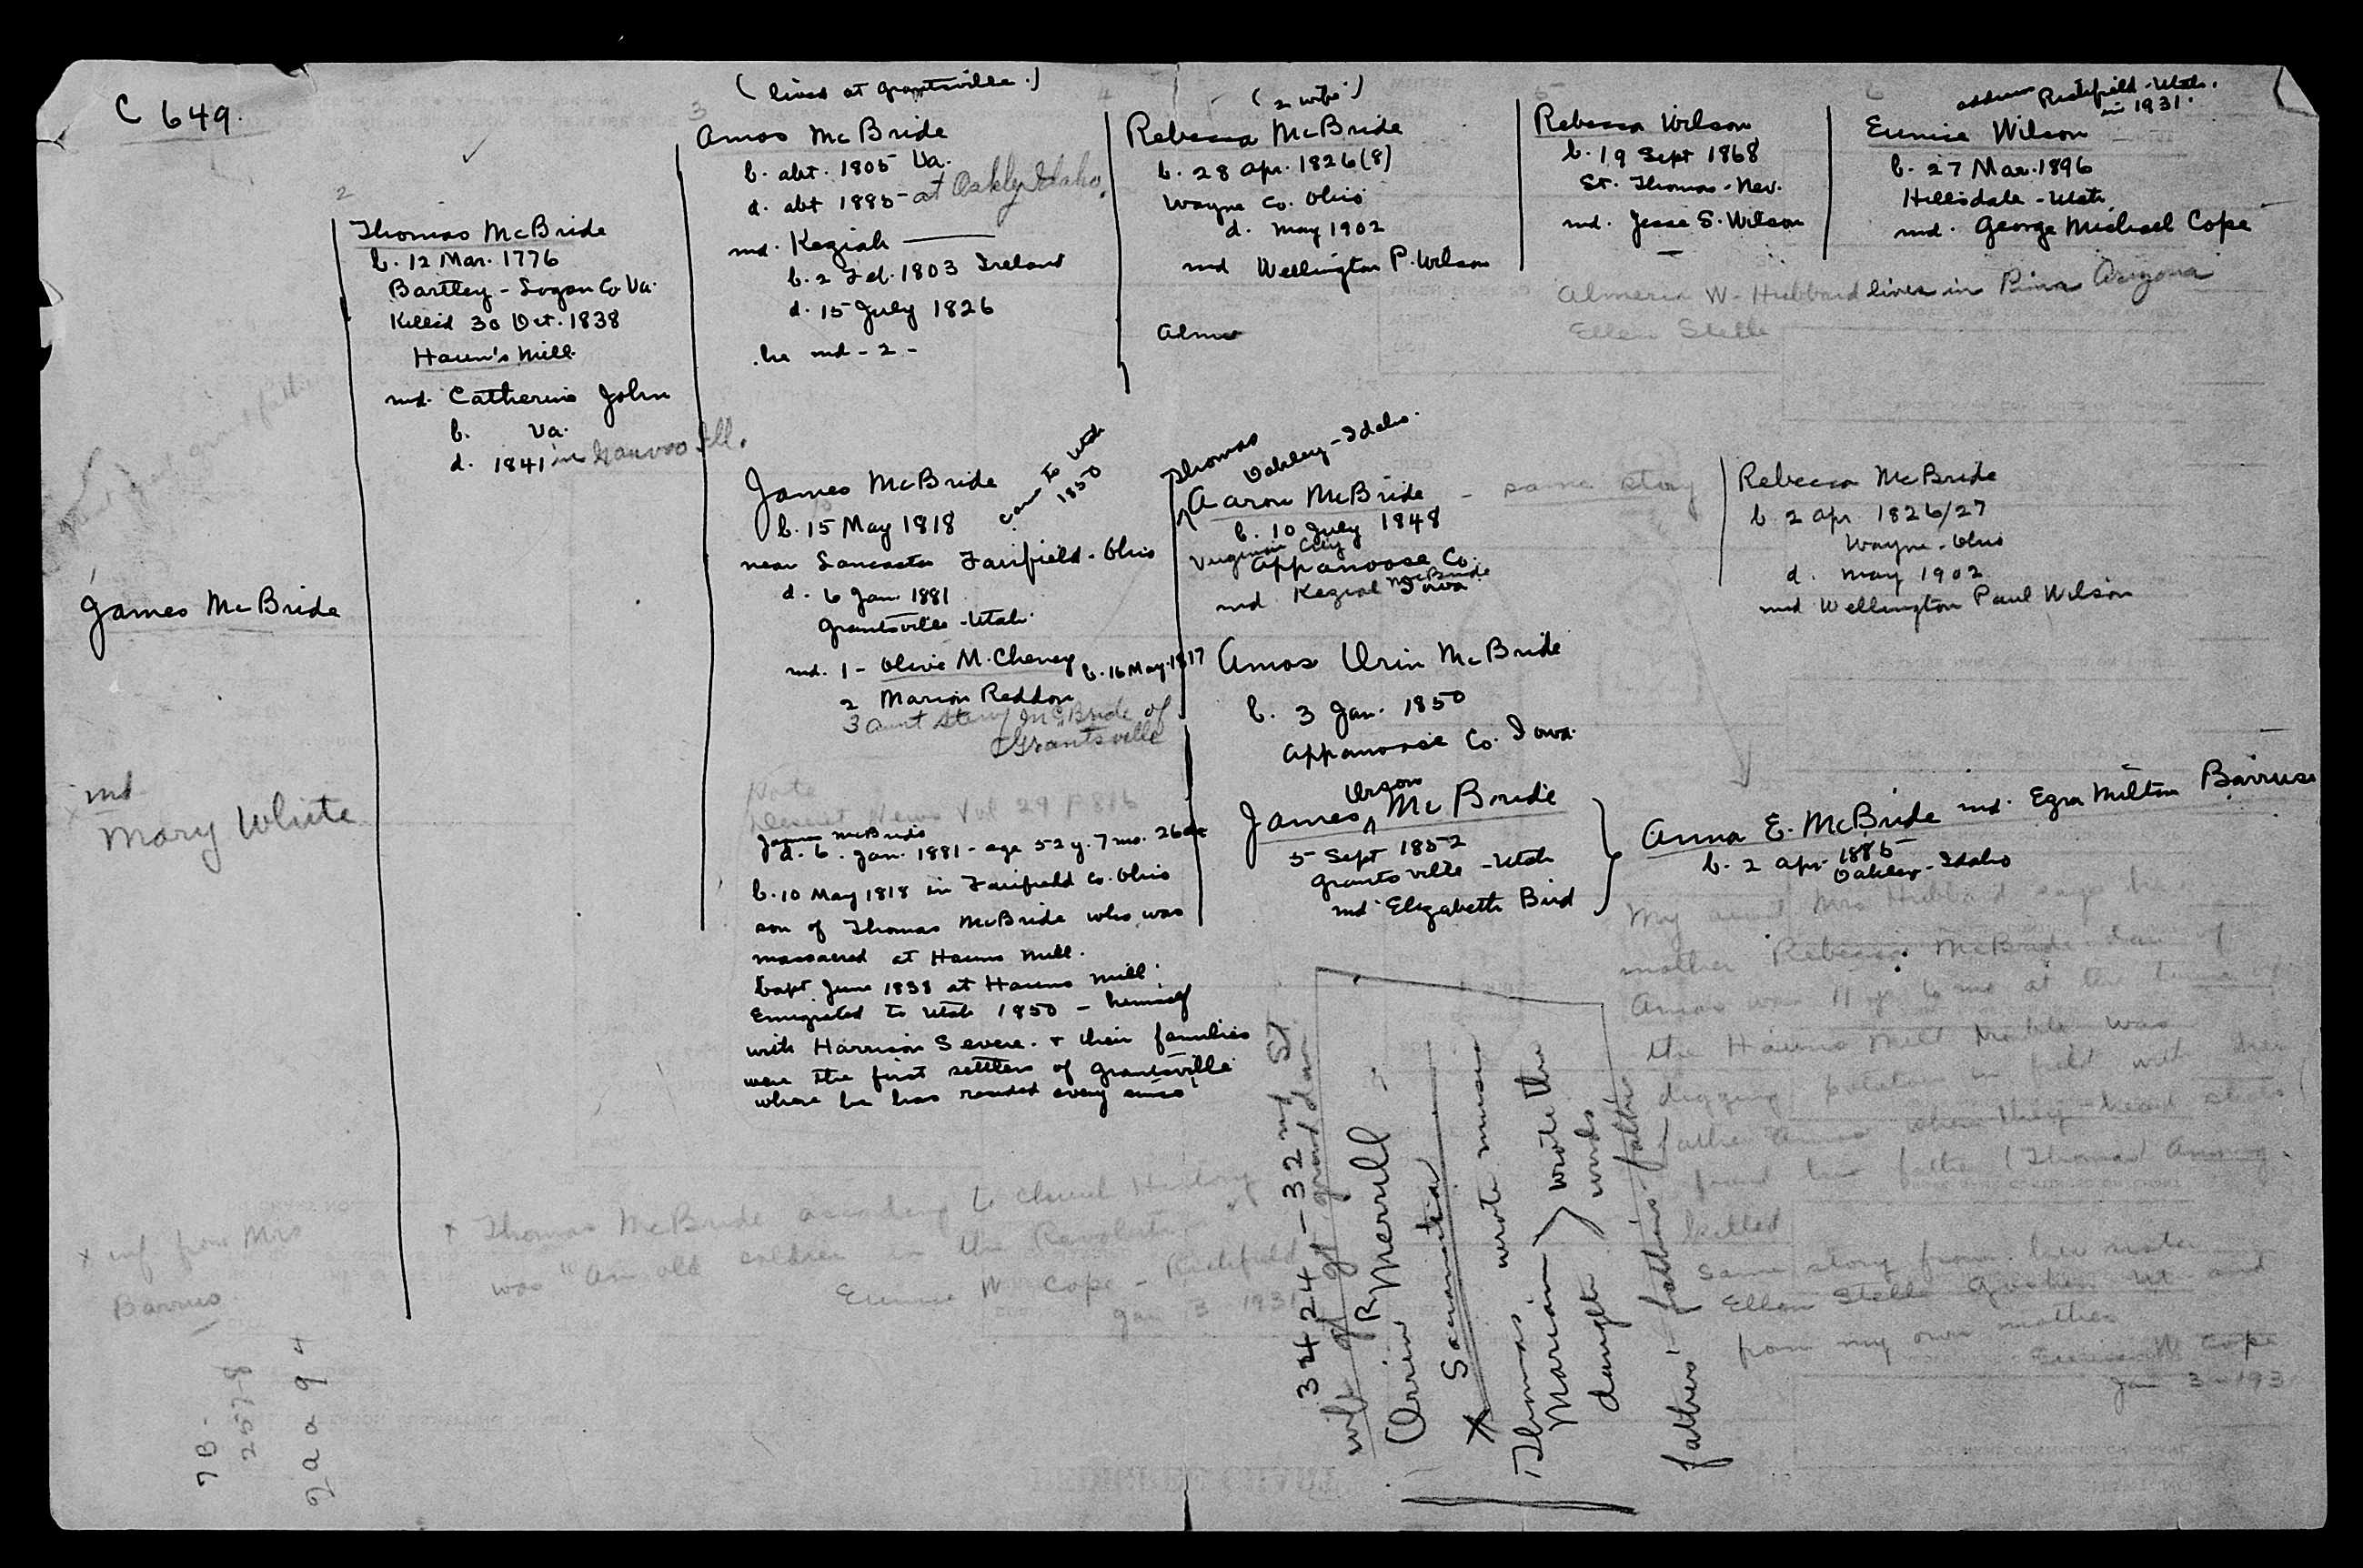 C 649.
1
James McBride
md
x Mary White
x inf. from Mrs
Barrus
2
Thomas McBride
b. 12 Mar. 1776
Bartley - Logan Co Va.
Killed 30 Oct. 1838
Haun's Mill
md. Catherine John
b. Va.
d. 1841 in Nauvoo Ill.
3
(lived at Grantsville.)
Amos McBride
b. abt. 1805 Va.
d. abt 1885 - at Oakly Idaho.
md. Keziah ———
b. 2 Feb. 1803 Ireland
d. 15 July 1826
he md - 2 -
James McBride
came to Utah
1850
b. 15 May 1818
near Lancaster Fairfield - Ohio
d. 6 Jan 1881
Grantsville - Utah.
md. 1 - Olive M. Cheney b. 16 May 1817
2 Marion Reddon
3 aunt McBride of
Grantsville
Note
Deseret News Vol 29 P 816
James McBride
d. 6. Jan. 1881 - age 52 y. 7 mo. 26 da
b. 10 May 1818 in Fairfield Co. Ohio
son of Thomas McBride who was
massacred at Hauns Mill.
bapt June 1838 at Hauns Mill.
Emigrated to Utah 1850 - himself
with Harrison Severe. + their families
were the first settlers of Grantsville
where he has resided every since
4
(2 wife.)
Rebecca McBride
b. 28 Apr. 1826(8)
Wayne Co. Ohio
d. May 1902
md Wellington P. Wilson
Alma
Thomas
Oakley - Idaho.
Aaron McBride - same story
b. 10 July 1848
Virginia City
Appanoose Co.
Iowa
md Keziah McBride
Amos Orin McBride
b. 3 Jan. 1850
Appanoose Co. Iowa.
Orson
James ^ McBride
5 Sept 1852
Grantsville - Utah
md. Elizabeth Bird
5
Rebecca Wilson
b. 19 Sept 1868
St. Thomas - Nev.
md. Jesse S. Wilson
6
address Richfield - Utah.
in 1931.
Eunice Wilson
b. 27 Mar. 1896
Hillsdale - Utah
md. George Michael Cope
Almeria W. Hubbard lives in Pima Arizona
Ellen Stelle
Rebecca McBride
b. 2 Apr 1826/27
Wayne - Ohio
d. May 1902
md Wellington Paul Wilson
Anna E. McBride md. Ezra Milton Barruse
b. 2 Apr. 1885
Oakley - Idaho
My aunt Mrs Hubbard says her
mother Rebecca McBride dau of
Amos was 11 y 6 mo at the time of
the Hauns Mill trouble was
digging potatoes in field with her
father Amos when they heard shots
found his father (Thomas) among
killed
Same story from her sister
Ellen Stelle Ut and
from my own mother
Eunice W Cope
Jan 3 - 193
+ Thomas McBride according to Church History
was "An old soldier in the Revolution"
Eunice W Cope - Richfield
Jan 3 1931
34424 - 32nd St
wife of gt grand dau
Orrin R Merrill -
X Samantha
Thomas wrote music
Marian } wrote the
daught } words
fathers' father's father
7B -
2578